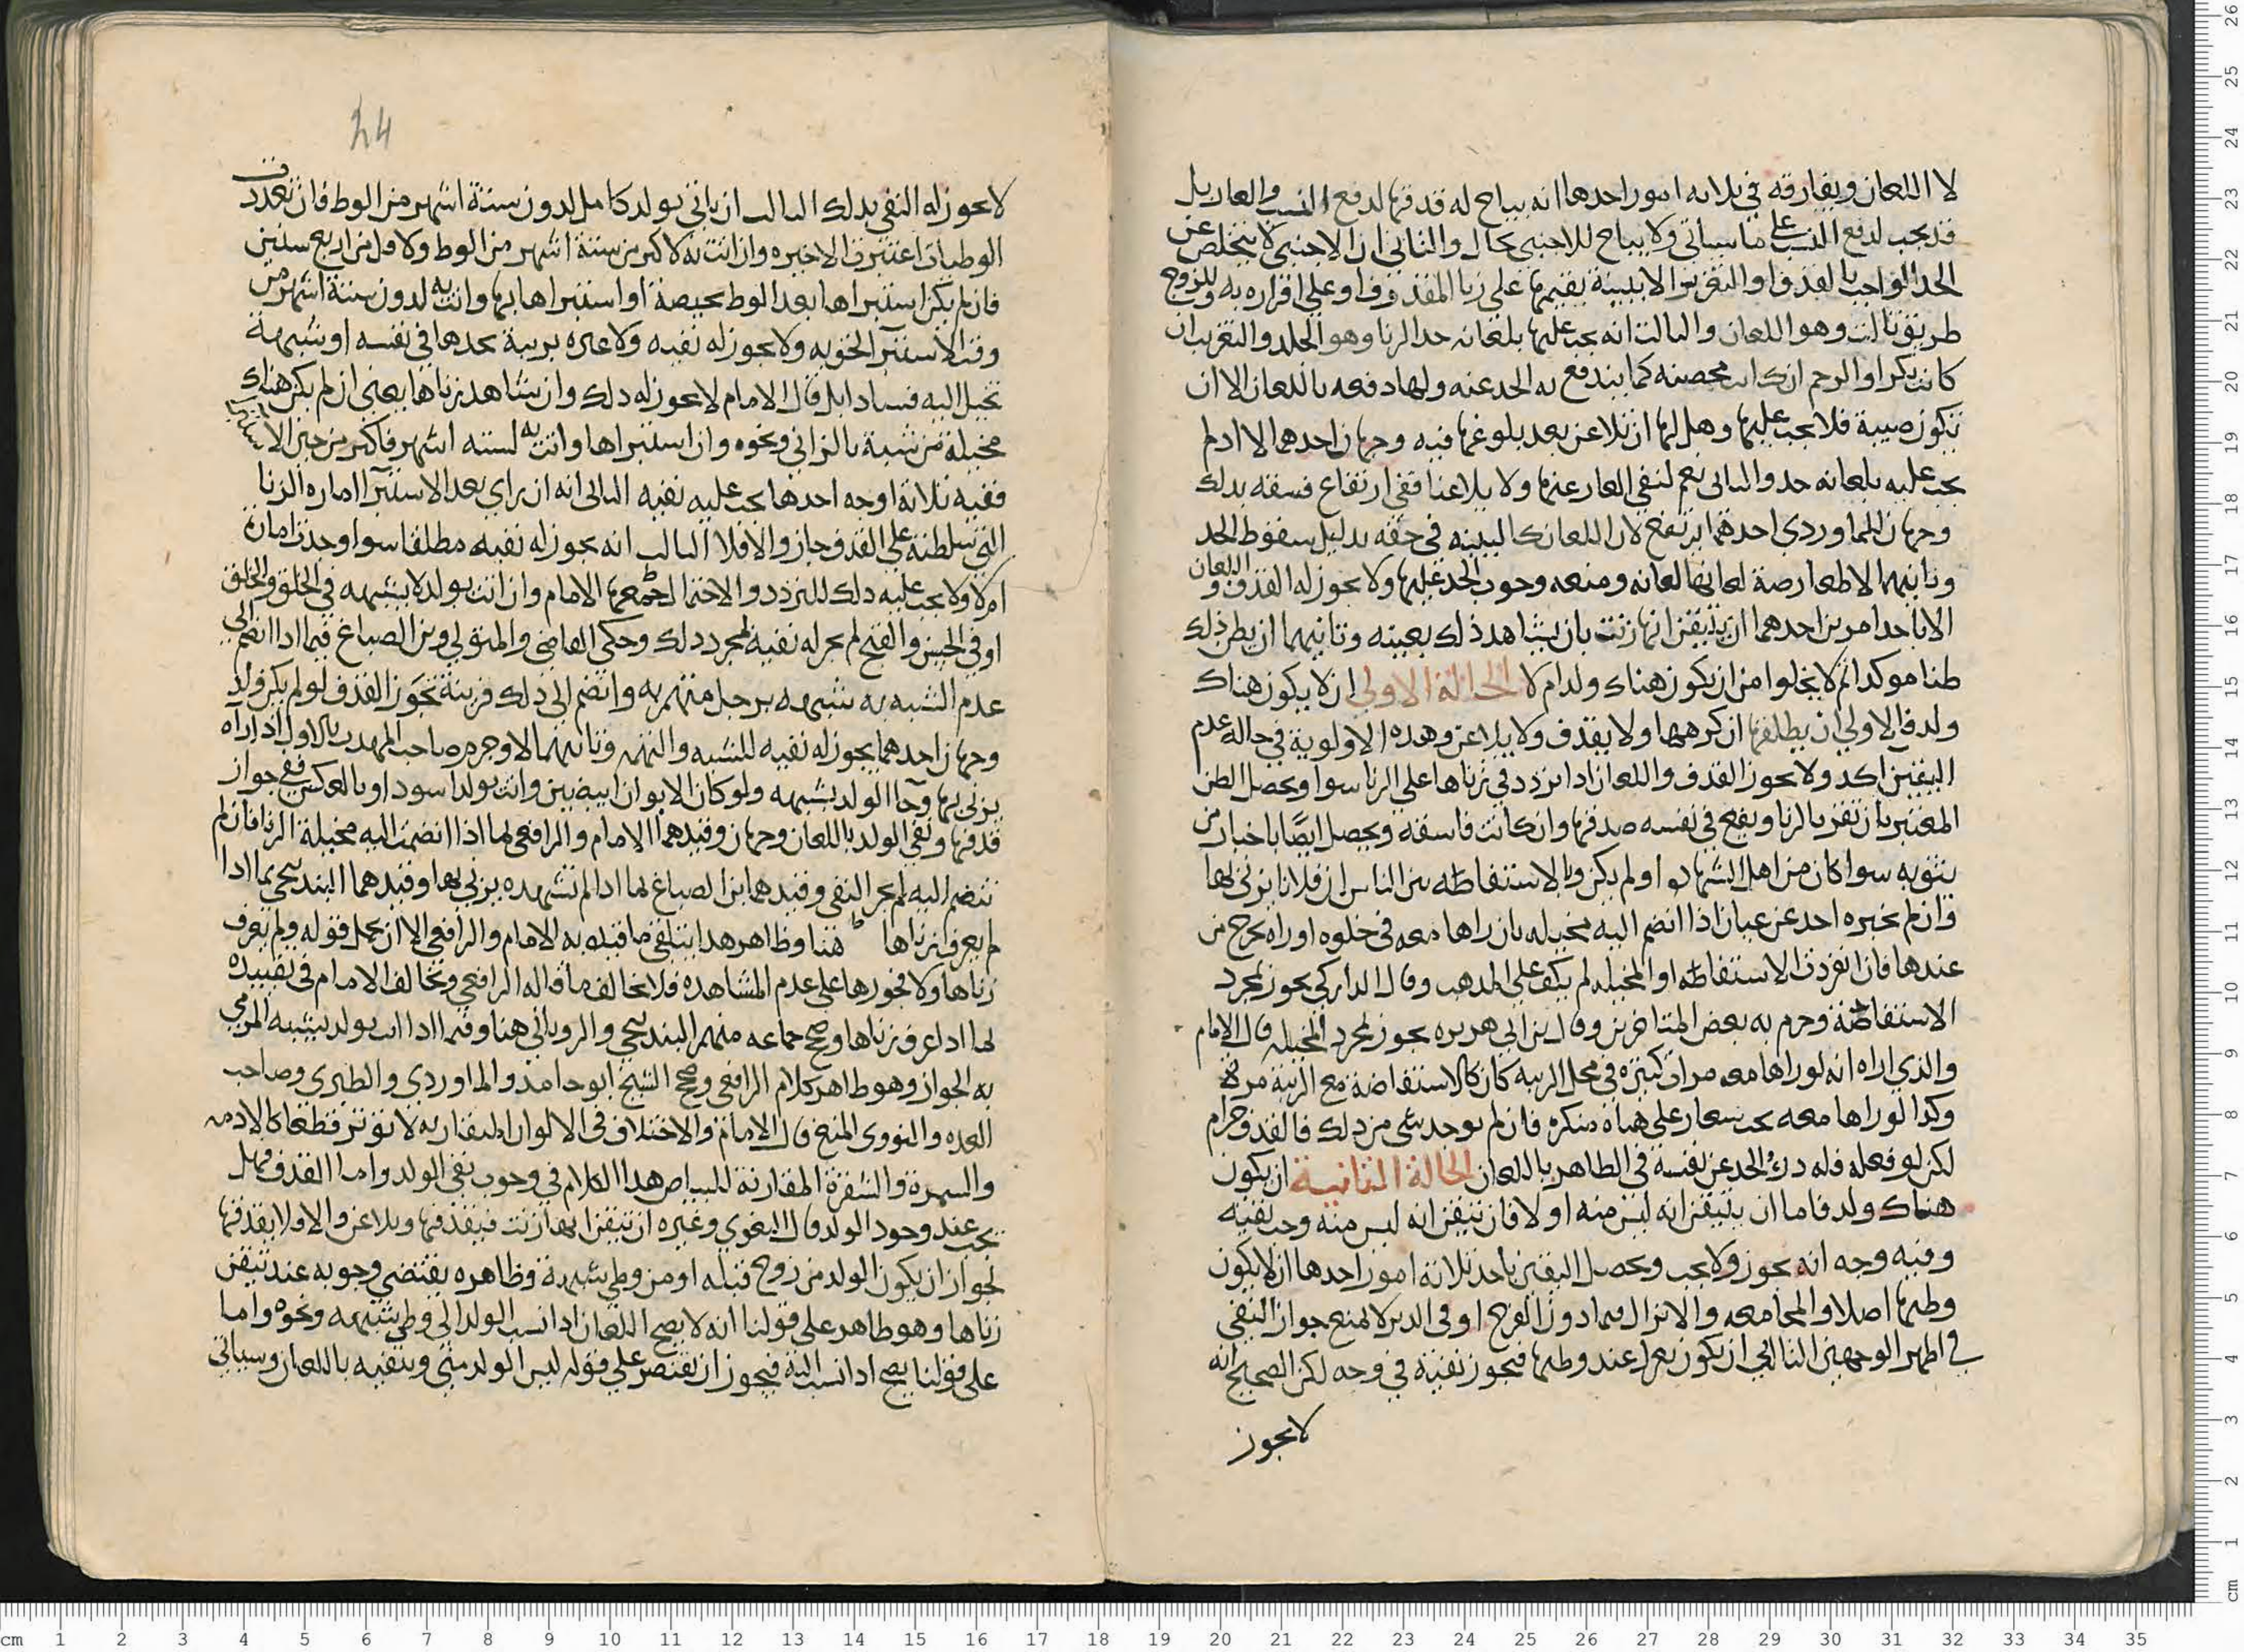 لا اللعان ويفارقه في ثلاثه امور احدها انه يباح له قدفها لدفع النسب والعار بل
قد يجب لدفع النسب على ما سياتي ولا يباح للاجنبي بحال والثاني ان الاجنبي لا يتخلص عن
الحد الواجب بالقذف او التعزير الا ببينة يقيمها على زنا المقذوف او على اقراره به وللزوج
طريق ثالث وهو اللعان والثالث انه يجب عليها بلعانه حد الزنا وهو الجلد والتغريب ان
كانت بكرا او الرجم ان كانت محصنه كما يندفع به الحد عنه ولها دفعه باللعان الا ان
تكون صبية فلا يجب عليها وهل لها ان تلاعن بعد بلوغها فيه وجهان احدهما لا اد لم
يجب عليه بلعانه حد والثاني نعم لنفي العار عنها ولا يلاعنا ففي ارتفاع فسقه بذلك
وجهان للماوردي احدهما يرتفع لان اللعان كالبينه في حقه بدليل سقوط الحد
وثانيهما لا لمعارصة لعانها لعانه ومنعه وجوب الحد عليها ولا يجوز له القذف واللعان
الا باحد امرين احدهما ان يتيقن انها زنت بان يشاهد ذلك بعينه وثانيهما ان يظن ذلك
ظنا موكدا ثم لا يخلوا من ان يكون هناك ولد ام لا الحالة الاولى ان لا يكون هناك
ولد فالاولى ان يطلقها ان كرهها ولا يقذف ولا يلاعن وهده الاولوية في حاله عدم
اليقين اكد ولا يجوز القدف واللعان ادا تردد في زناها على الزنا سوا ويحصل الظن
المعتبر بان تقر بالزنا ويقع في نفسه صدقها وان كانت فاسقه ويحصل ايضا باخبار من
يثق به سوا كان من اهل الشهاده او لم يكن وبالاستفاضه بين الناس ان فلانا يزني بها
وان لم يخبره احد عن عيان اذا انضم اليه مخيله بان راها معه في خلوه او راه يخرج من
عندها فان انفردت الاستفاضه او المخيله لم يكف على المدهب وقال الداركي يجوز لمجرد
الاستفاضة وجرم به بعض المتاخرين وقال ابن ابي هريره يجوز لمجرد المخيله قال الامام
والذي اراه انه لو راها معه مرات كثيره في محل الريبه كان كالاستفاضة مع الريبة مرة
وكدا لو راها معه تحت شعار على هياة منكره فان لم يوجد شي من دلك فالقذف حرام
لكن لو فعله فله درء الحد عن نفسه في الظاهر باللعان الحالة الثانية ان يكون
هناك ولد فاما ان يتيقن انه ليس منه او لا فان تيقن انه ليس منه وجب نفيه
وفيه وجه انه يجوز ولا يجب ويحصل اليقين باحد ثلاثة امور احدها ان لا يكون
وطيها اصلا والمجامعه والانزال فيما دون الفرج او في الدبر لا يمنع جواز النفي
في اظهر الوجهين الثاني ان يكون يعزل عند وطيها فيجوز نفيه في وجه لكن الصحيح انه
لا يجوز
24
لا يجوز له النفي بدلك الثالث ان ياتي بولد كامل لدون ستة اشهر من الوط فان تعددت
الوطيات اعتبرت الاخيره وان اتت به لاكثر من ستة اشهر من الوط ولاقل من اربع سنين
فان لم يكن استبراها بعد الوط بحيضة او استبراها بها واتت به لدون ستة اشهر من
وقت الاستبرا لحق به ولا يجوز له نفيه ولا عبره بريبة يجدها في نفسه او شبهة
تخيل اليه فسادا بل قال الامام لا يجوز له دلك وان شاهد زناها يعني ان لم يكن هناك
مخيلة من شبه بالزاني ونحوه وان استبراها واتت به لسته اشهر فاكثر من حين الاستبرا
ففيه ثلاثة اوجه احدها يجب عليه نفيه الثاني انه ان راى بعد الاستبرا اماره الزنا
التي تسلطنه على القدف جاز والا فلا الثالث انه يجوز له نفيه مطلقا سوا وجدت امارة
ام لا ولا يجب عليه دلك للتردد والاحتمال جمعها الامام وان اتت بولد لا يشبهه في الخلق والخلق
او في الحسن والقبح لم يجز له نفيه لمجرد دلك وحكى القاضي والمتولي وبن الصباغ فيما ادا انضم الى
عدم الشبه به شبهه برجل متهم به وانضم الى ذلك قرينة تجوز القدف لو لم يكن ولد
وجهان احدهما يجوز له نفيه للشبه والتهمه وثانيهما لا وجرم صاحب المهدب بالاول ادا راه
يزني بها وجا الولد يشبهه ولو كان الابوان ابيضين واتت بولد اسود او بالعكس ففي جواز
قدفها ونفي الولد باللعان وجهان وقيدهما الامام والرافعي بما اذا انضمت اليه مخيلة الزنا فان لم
تنضم اليه لم يجز النفي وقيدهما بن الصباغ بما ادا لم تشهده يزني بها وقيدهما البندنيجي بما ادا
لم يعرف زناها هنا وظاهر هدا ينافي ما قيده به الامام والرافعي الا ان يحمل قوله ولم يعرف
زناها ولا فجورها على عدم المشاهده فلا يخالف ما قاله الرافعي ويخالف الامام في تقييده
لها ادا عرف زناها وصحح جماعه منهم البندنيجي والروياني هنا وفيما ادا اتت بولد يشبه المرمي
به الجواز وهو ظاهر كلام الرافعي وصحح الشيخ ابو حامد والماوردي والطبري وصاحب
العده والنووي المنع قال الامام والاختلاف في الالوان المتقاربه لا يوثر قطعا كالادمه
والسمرة والشقرة المقاربة للبياض هدا الكلام في وجوب نفي الولد واما القدف فهل
يجب عند وجود الولد قال البغوي وغيره ان تيقن انها زنت فيقذفها ويلاعن والا فلا يقدفها
لجواز ان يكون الولد من زوج قبله او من وطي شبهة وظاهره يقتضي وجوبه عند تيقن
زناها وهو ظاهر على قولنا انه لا يصح اللعان ادا نسب الولد الى وطي شبهه ونحوه واما
على قولنا يصح ادا نسب اليه فيجوز ان يقتصر على قوله ليس الولد مني وينفيه باللعان وسياتي